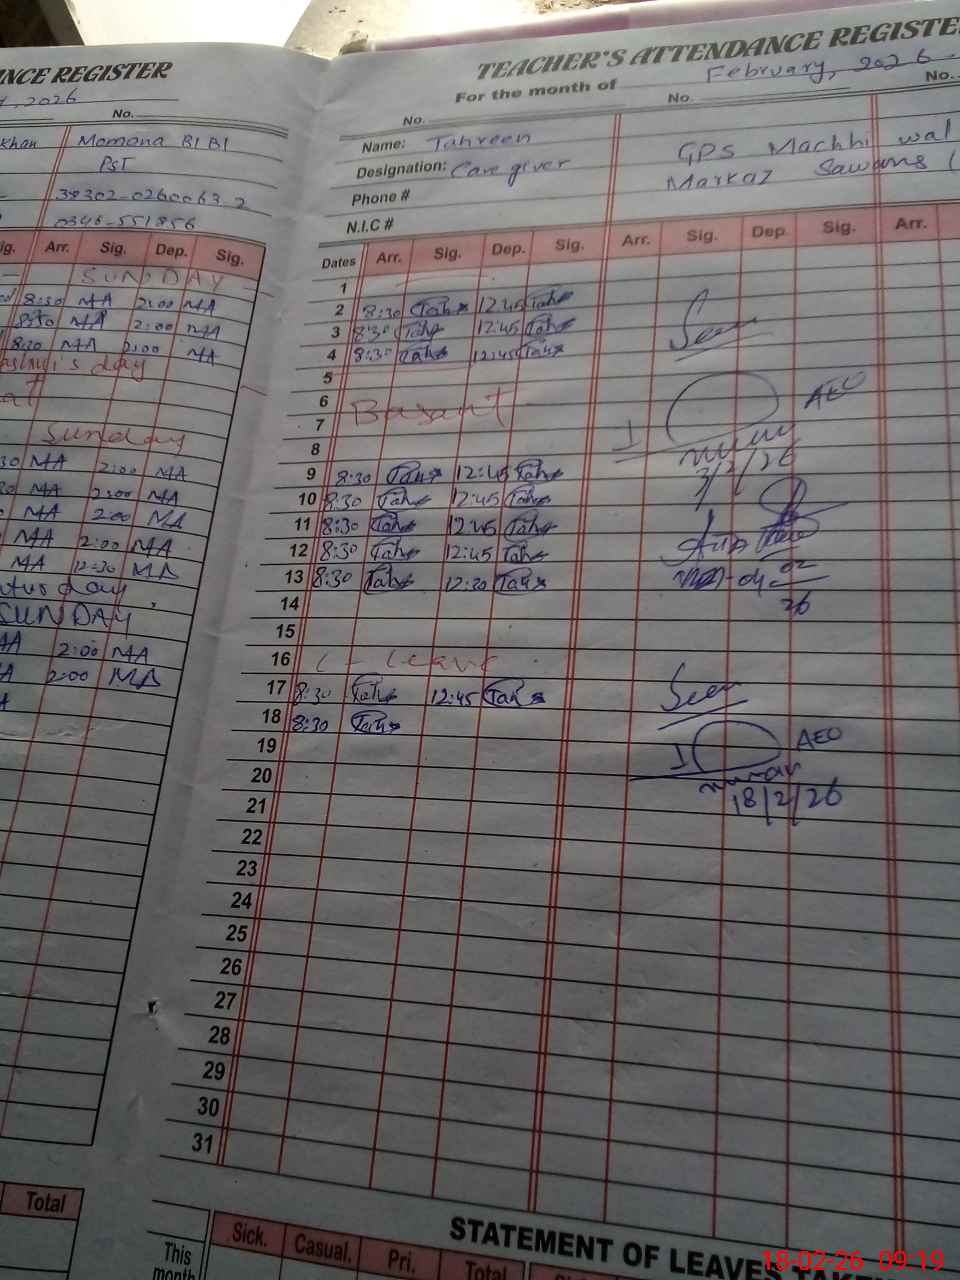 NCE REGISTER
2026
No.
Khan Momona BIBI
PST
38302-0260063-2
0346-551856
ig. Arr. Sig. Dep. Sig.
SUNDAY
8:30 MA 2:00 MA
8:30 MA 2:00 MA
8:30 MA 2:00 MA
day
Sunday
30 MA 2:00 MA
30 MA 2:00 MA
MA 2:00 MA
MA 2:00 MA
MA 12:30 MA
day
SUNDAY
MA 2:00 MA
A 2:00 MA
Total
TEACHER'S ATTENDANCE REGISTE
For the month of February, 2026
No. No. No.
Name: Tahreen
Designation: Care giver
Phone #
N.I.C #
GPS Machhi wal
Markaz Sawans (
Dates Arr. Sig. Dep. Sig. Arr. Sig. Dep. Sig. Arr.
1
2 8:30 Tah 12:45 Tah
3 8:30 Tah 12:45 Tah
4 8:30 Tah 12:45 Tah
Seen
5
6
7 Basant
AEO
8
3/2/26
9 8:30 Tah 12:45 Tah
10 8:30 Tah 12:45 Tah
11 8:30 Tah 12:45 Tah
12 8:30 Tah 12:45 Tah
13 8:30 Tah 12:30 Tah
14
26
15
16 L - Leave
17 8:30 Tah 12:45 Tah
Seen
18 8:30 Tah
19
AEO
20
18/2/26
21
22
23
24
25
26
27
28
29
30
31
STATEMENT OF LEAVES TA
This month
Sick. Casual. Pri. Total
18-02-26 09:19